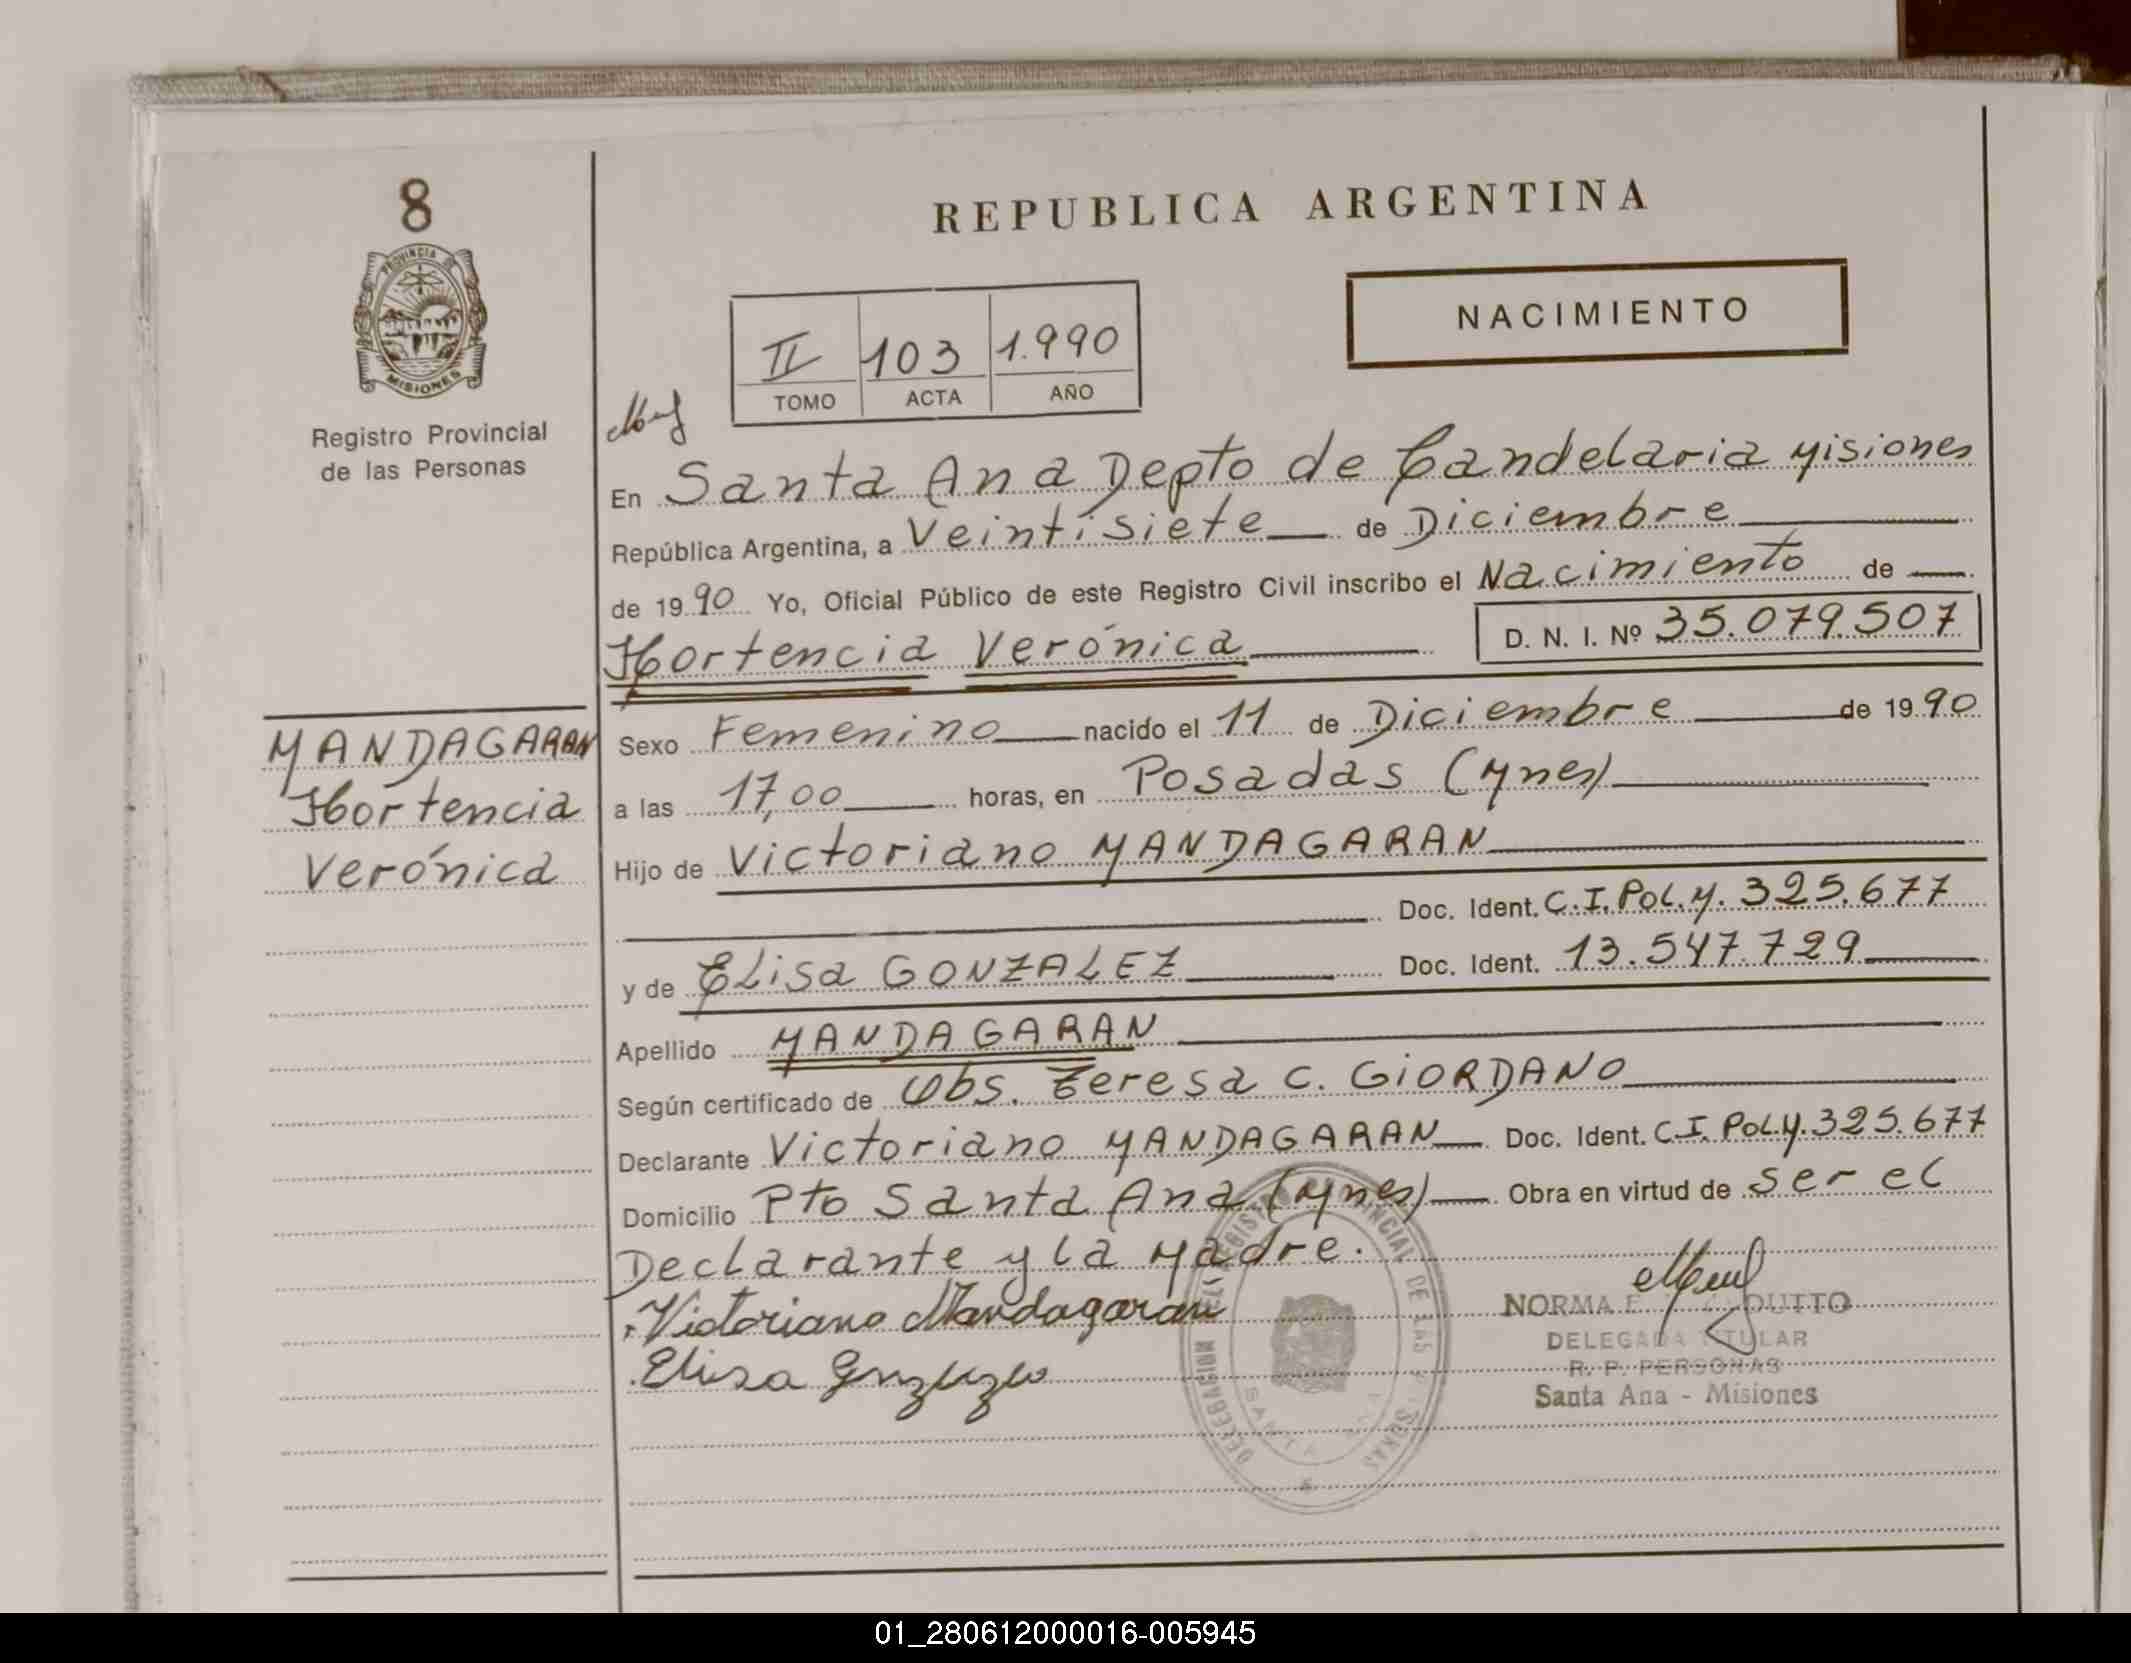 8
PROVINCIA DE
MISIONES
Registro Provincial
de las Personas
REPUBLICA ARGENTINA
NACIMIENTO
II 103 1.990
TOMO ACTA AÑO
En Santa Ana Depto de Candelaria Misiones
República Argentina, a Veintisiete de Diciembre
de 1990 Yo, Oficial Público de este Registro Civil inscribo el Nacimiento de
Hortencia Verónica D. N. I. Nº 35.079.507
MANDAGARAN
Hortencia
Verónica
Sexo Femenino nacido el 11 de Diciembre de 1990
a las 17,00 horas, en Posadas (Mnes)
Hijo de Victoriano MANDAGARAN
Doc. Ident. C.I. Pol. M. 325.677
y de Elisa GONZALEZ Doc. Ident. 13.547.729
Apellido MANDAGARAN
Según certificado de Obs. Teresa C. GIORDANO
Declarante Victoriano MANDAGARAN Doc. Ident. C.I. Pol. M. 325.677
Domicilio Pto Santa Ana (Mnes) Obra en virtud de ser el
Declarante y la Madre.
Victoriano Mandagaran
Elisa
DELEGACION DEL REGISTRO PROVINCIAL DE LAS PERSONAS
SANTA ANA
NORMA E.
DELEGADA TITULAR
R. P. PERSONAS
Santa Ana - Misiones
01_280612000016-005945